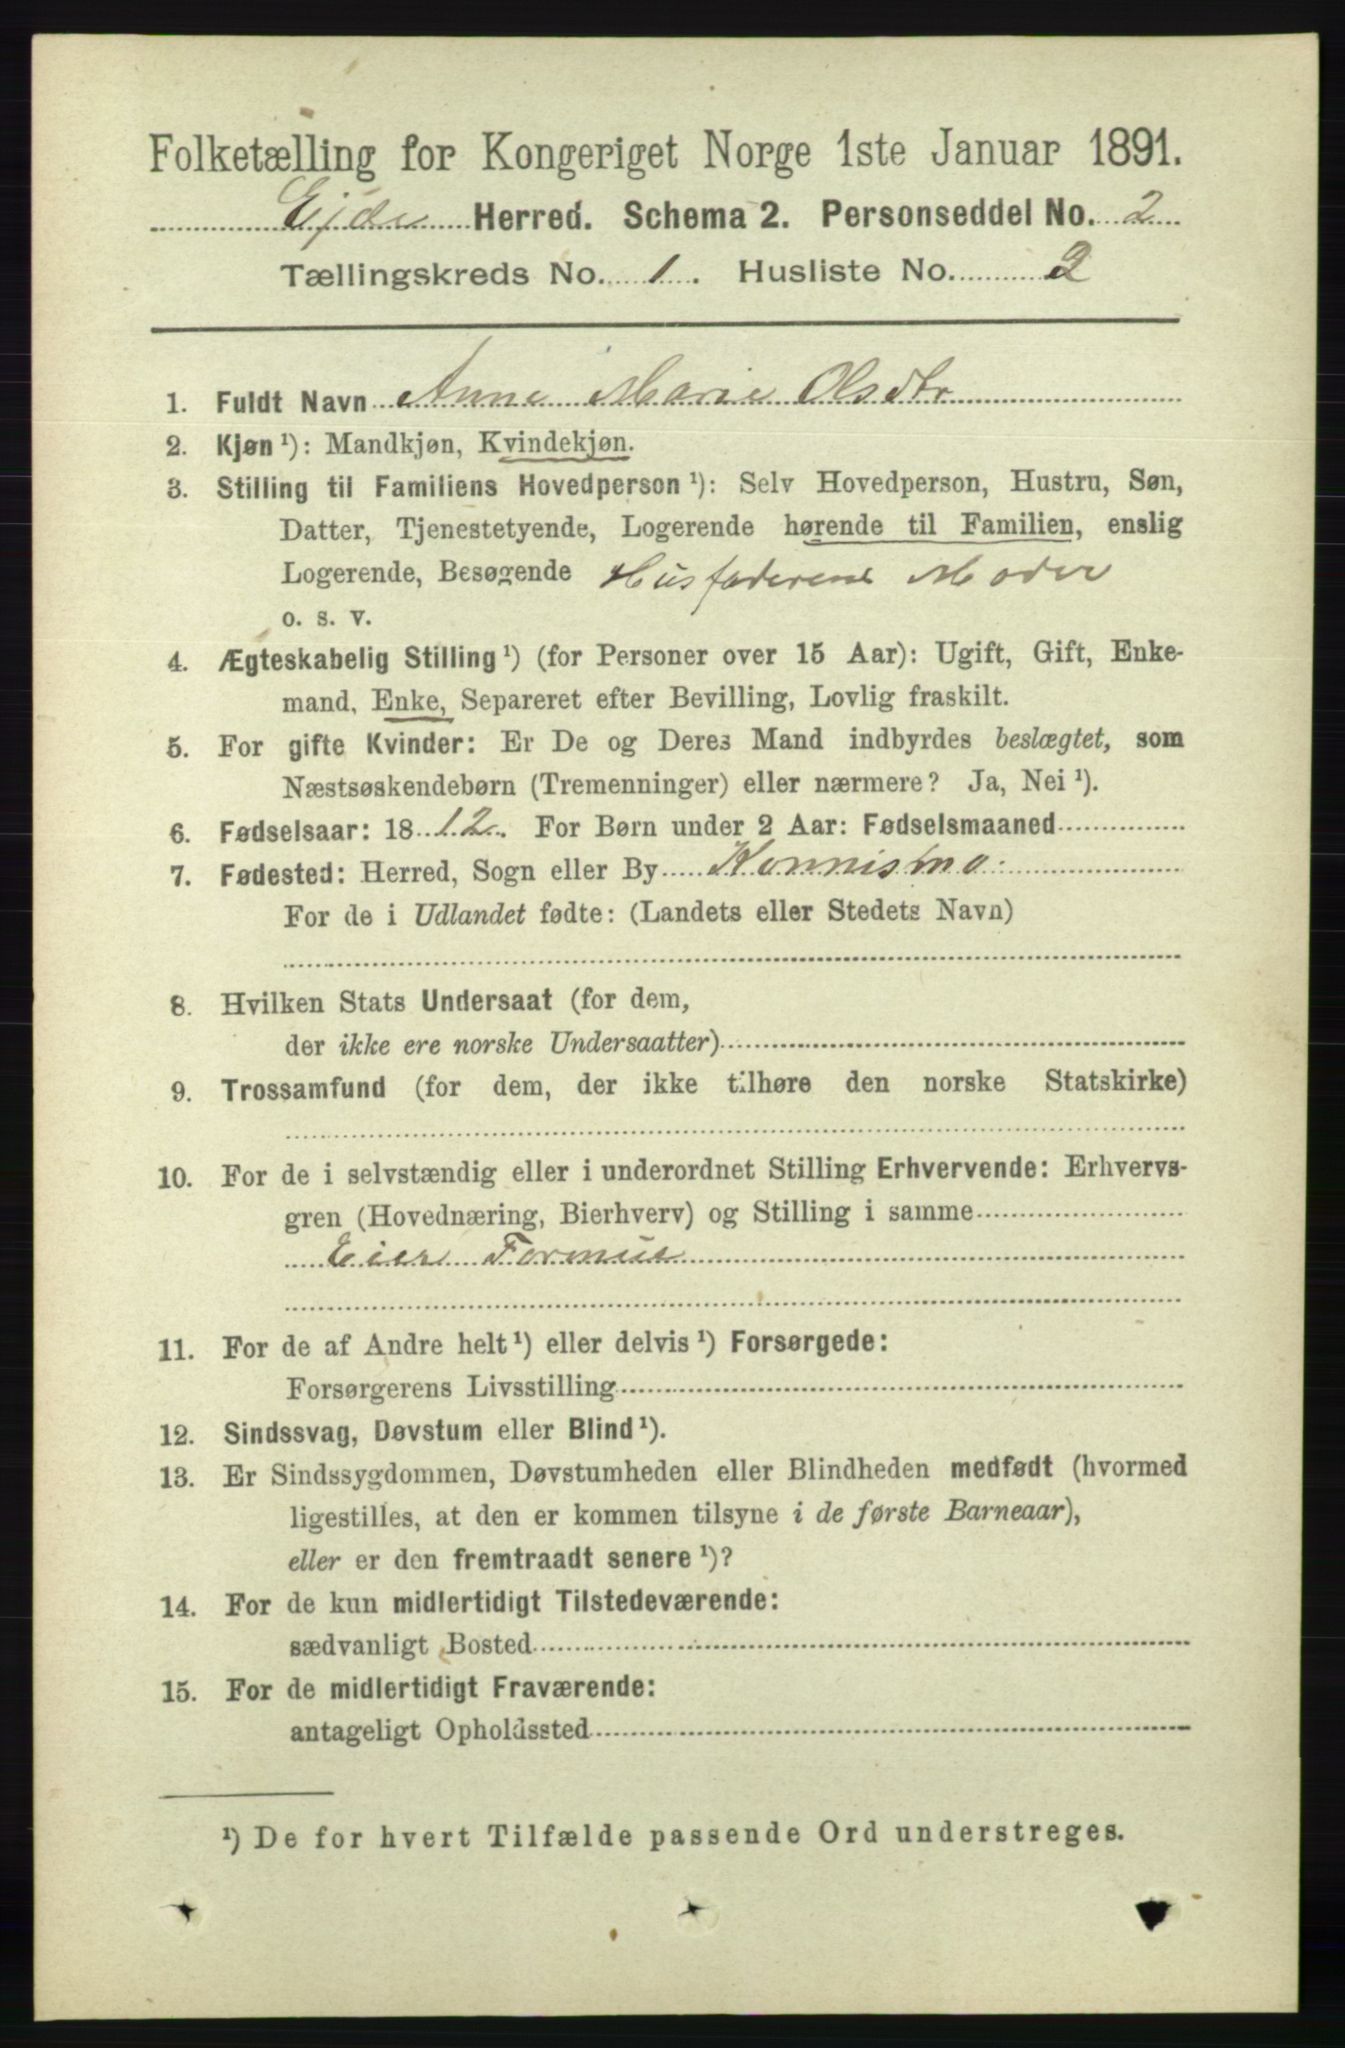 Folketælling for Kongeriget Norge 1ste Januar 1891.
Ejde Herred. Schema 2. Personseddel No. 2
Tællingskreds No. 1. Husliste No. 2
1. Fuldt Navn Anne Marie Olsdtr
2. Kjøn ¹): Mandkjøn, Kvindekjøn.
3. Stilling til Familiens Hovedperson ¹): Selv Hovedperson, Hustru, Søn,
Datter, Tjenestetyende, Logerende hørende til Familien, enslig
Logerende, Besøgende Husfaderens Moder
o. s. v.
4. Ægteskabelig Stilling ¹) (for Personer over 15 Aar): Ugift, Gift, Enke-
mand, Enke, Separeret efter Bevilling, Lovlig fraskilt.
5. For gifte Kvinder: Er De og Deres Mand indbyrdes beslægtet, som
Næstsøskendebørn (Tremenninger) eller nærmere? Ja, Nei ¹).
6. Fødselsaar: 1812. For Børn under 2 Aar: Fødselsmaaned
7. Fødested: Herred, Sogn eller By Konnismo
For de i Udlandet fødte: (Landets eller Stedets Navn)
8. Hvilken Stats Undersaat (for dem,
der ikke ere norske Undersaatter)
9. Trossamfund (for dem, der ikke tilhøre den norske Statskirke)
10. For de i selvstændig eller i underordnet Stilling Erhvervende: Erhvervs-
gren (Hovednæring, Bierhverv) og Stilling i samme
Eier Formue
11. For de af Andre helt ¹) eller delvis ¹) Forsørgede:
Forsørgerens Livsstilling
12. Sindssvag, Døvstum eller Blind ¹).
13. Er Sindssygdommen, Døvstumheden eller Blindheden medfødt (hvormed
ligestilles, at den er kommen tilsyne i de første Barneaar),
eller er den fremtraadt senere ¹)?
14. For de kun midlertidigt Tilstedeværende:
sædvanligt Bosted
15. For de midlertidigt Fraværende:
antageligt Opholdssted
¹) De for hvert Tilfælde passende Ord understreges.